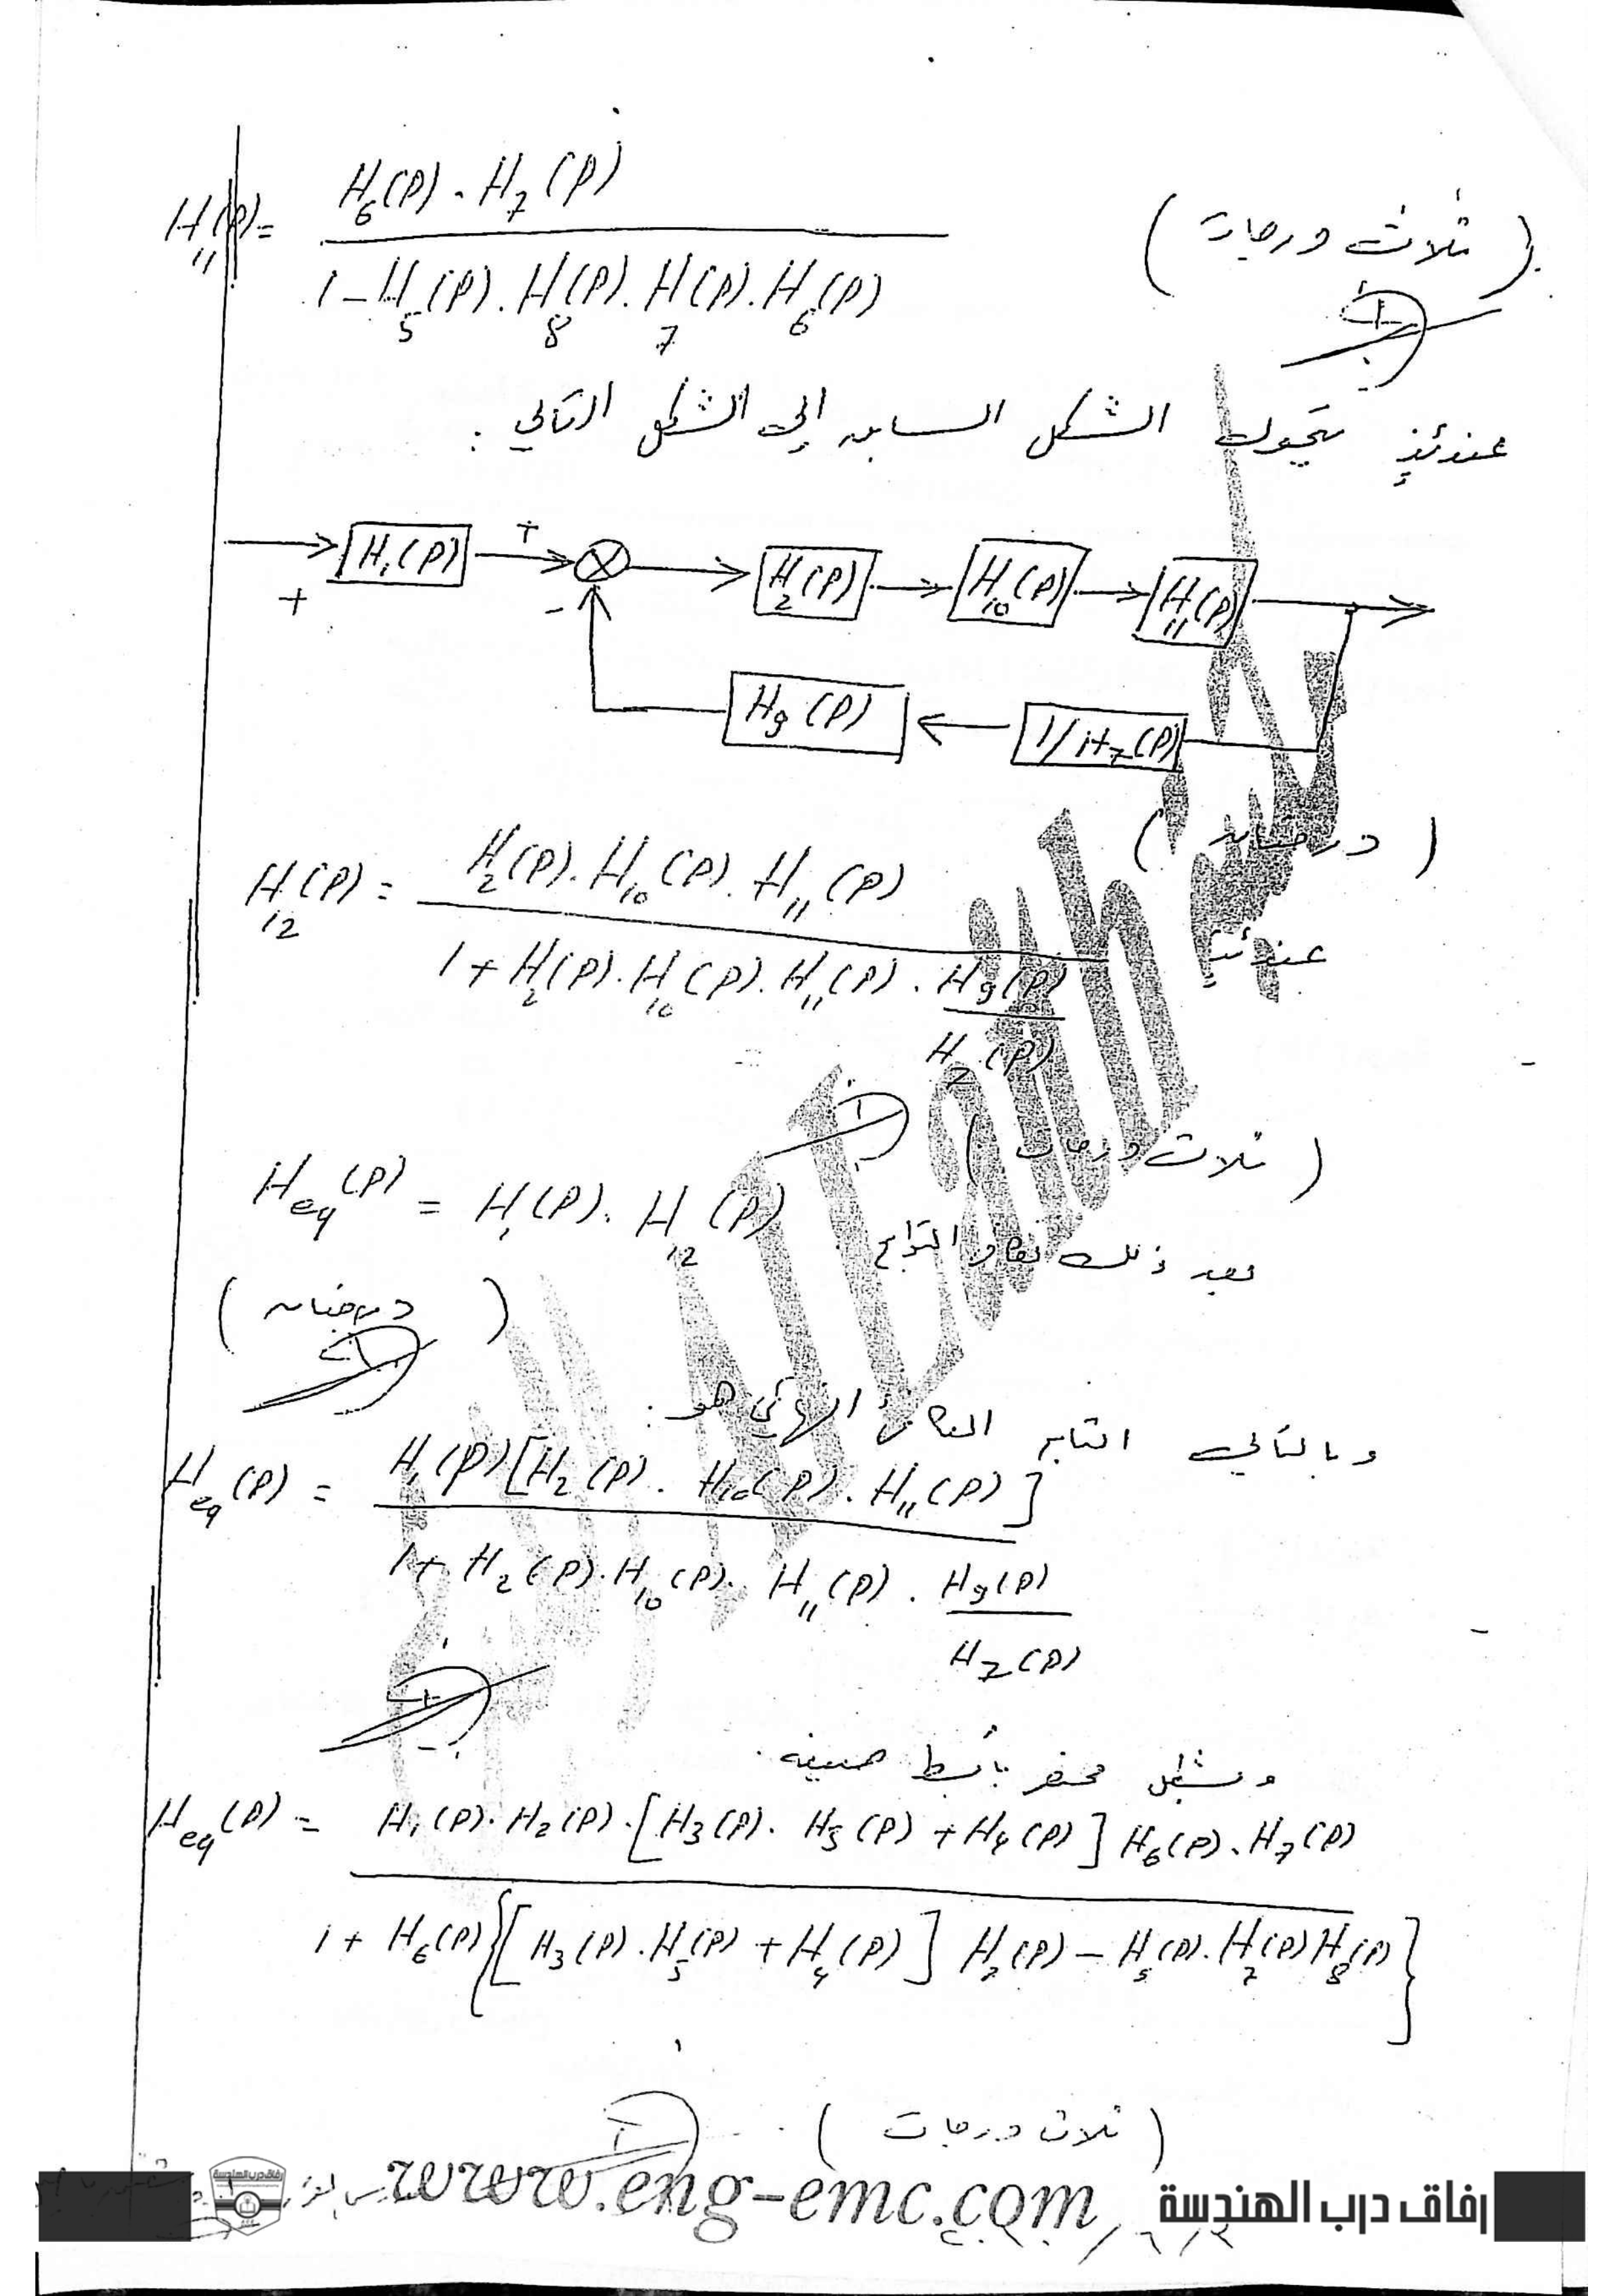 H11(P) = H6(P) . H7(P)
1 - H5(P) . H8(P) . H7(P) . H6(P)
( ثلاث درجات )
عندئذٍ يتحول الشكل السابق إلى الشكل التالي :
H1(P) + H2(P) H10(P) H11(P)
+ -
H9(P) 1/H7(P)
( درجتان )
H12(P) = H2(P) . H10(P) . H11(P)
عندئذٍ
1 + H2(P) . H10(P) . H11(P) . H9(P)
H7(P)
( ثلاث درجات )
Heq(P) = H1(P) . H12(P)
بعد ذلك التوابع
( درجتان )
وبالتالي التابع المكافئ النهائي هو :
Heq(P) = H1(P) [H2(P) . H10(P) . H11(P)]
1 + H2(P) . H10(P) . H11(P) . H9(P)
H7(P)
وبشكل مختصر بأبسط صيغة .
Heq(P) = H1(P) . H2(P) . [H3(P) . H5(P) + H4(P)] H6(P) . H7(P)
1 + H6(P) {[H3(P) . H5(P) + H4(P)] H2(P) - H5(P) . H7(P) H8(P)}
( ثلاث درجات )
www.eng-emc.com
رفاق درب الهندسة